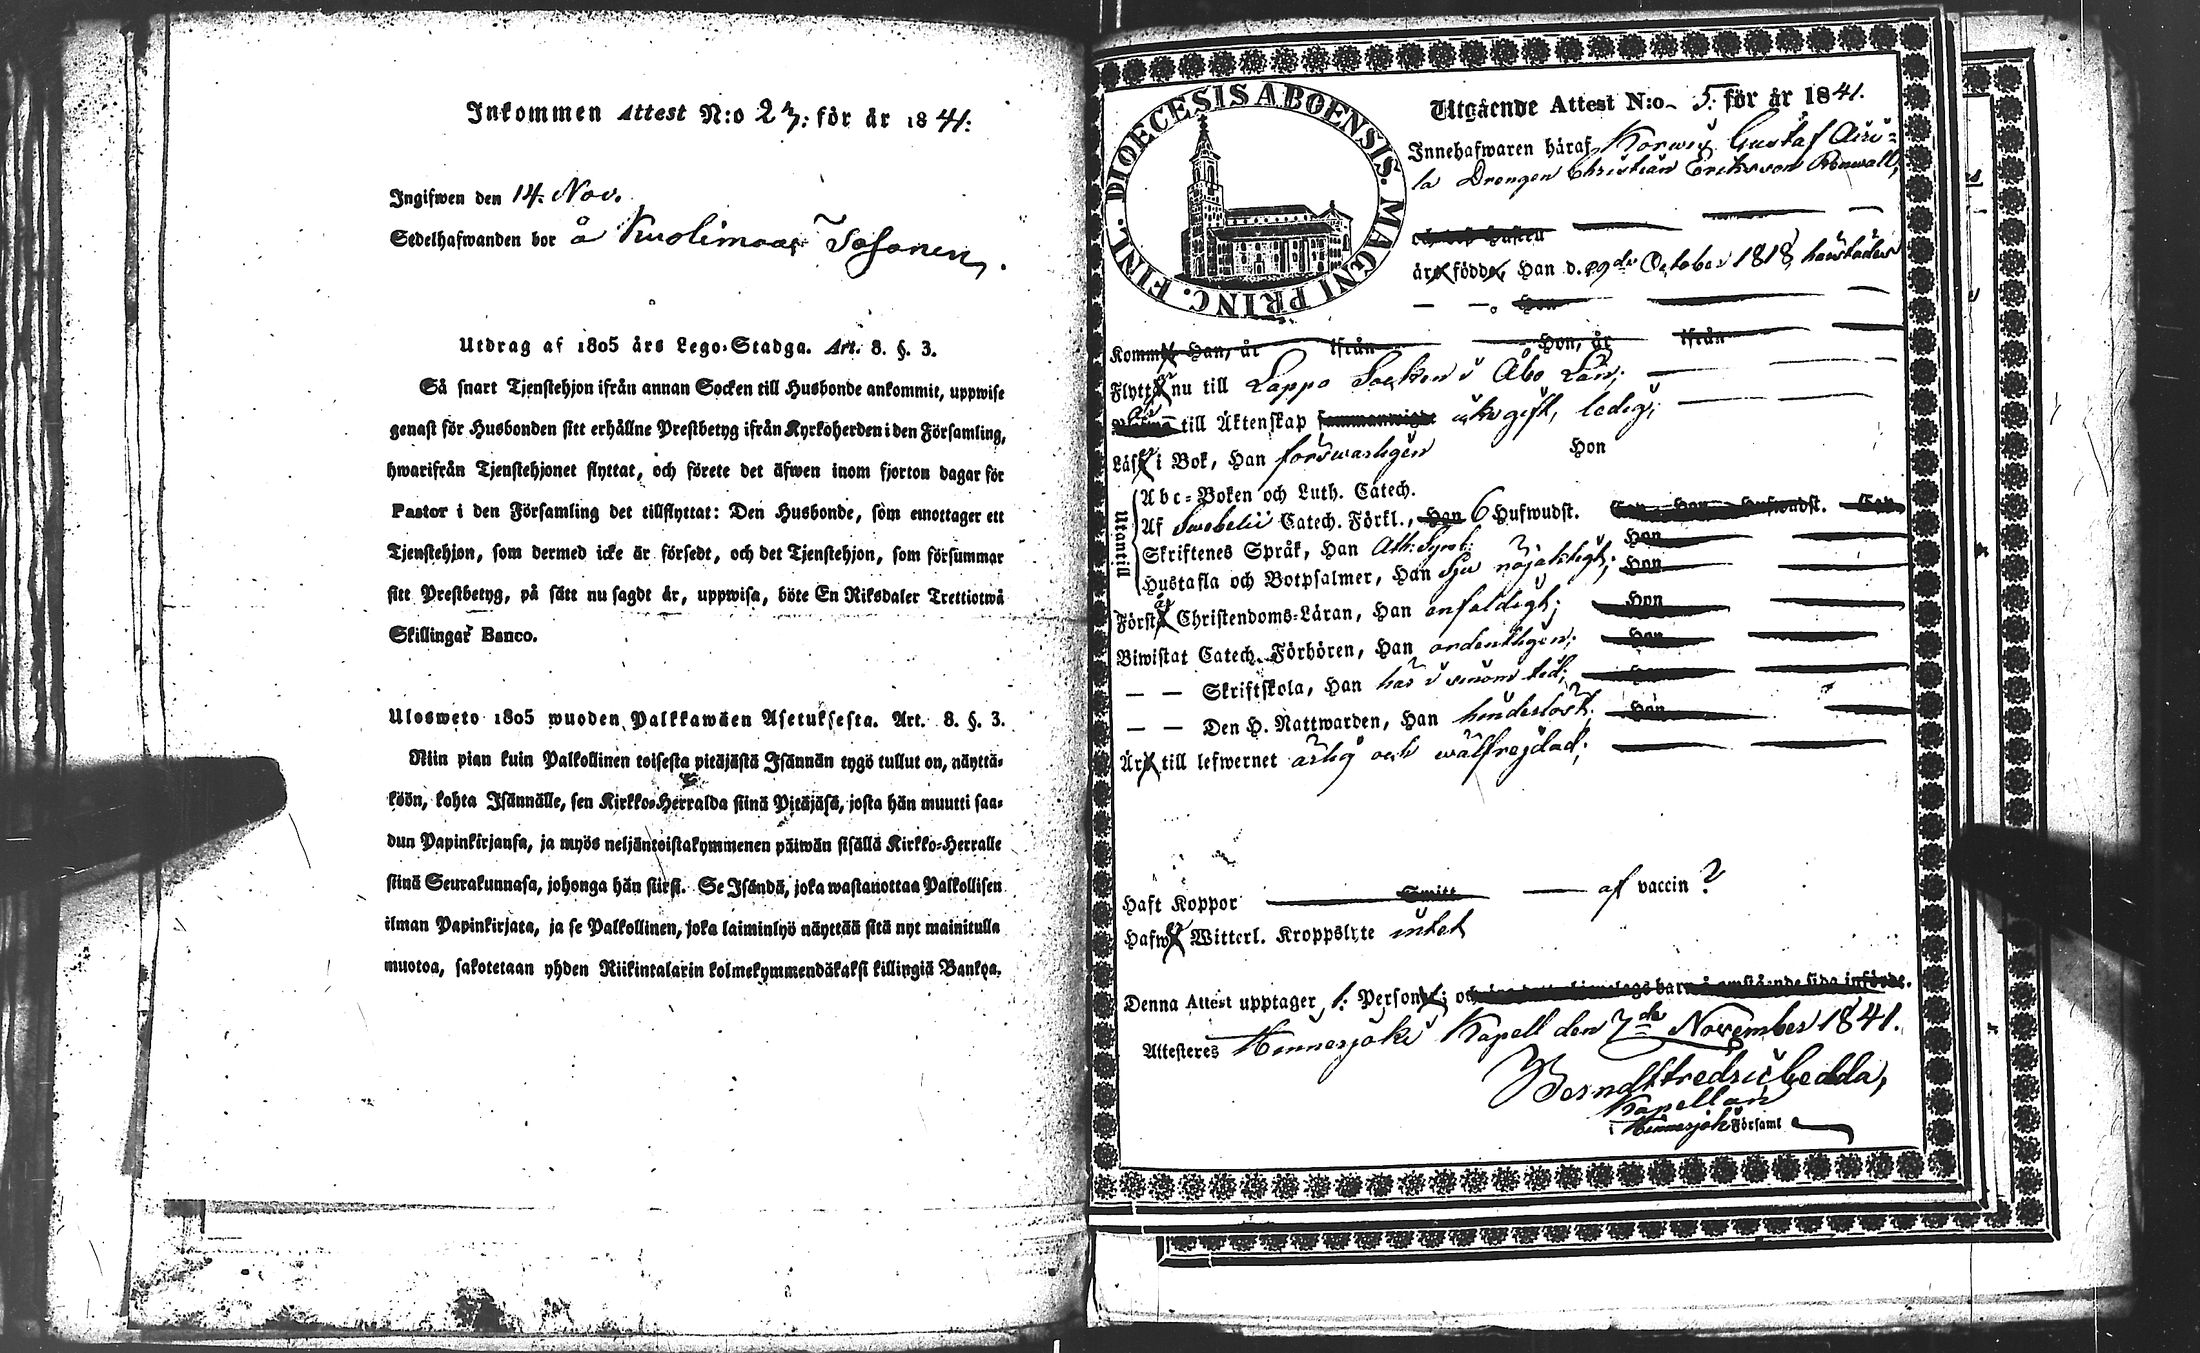 Inkommen Attest N:o 23: för år 1841:
Ingifwen den 14. Nov.
Sedelhafwanden bor å Kuolimaa
Utdrag af 1805 års Lego-Stadga. Art. 8. §. 3.
Så snart Tjenstehjon ifrån annan Socken till Husbonde ankommit, uppwise
genast för Husbonden sitt erhållne Prestbetyg ifrån Kyrkoherden i den Församling,
hwarifrån Tjenstehjonet flyttat, och förete det äfwen inom fjorton dagar för
Pastor i den Församling det tillflyttat: Den Husbonde, som emottager ett
Tjenstehjon, som dermed icke är försedt, och det Tjenstehjon, som försummar
sitt Prestbetyg, på sätt nu sagdt är, uppwisa, böte En Riksdaler Trettiotwå
Skillingar Banco.
Ulosweto 1805 wuoden Palkkawäen Asetuksesta. Art. 8. §. 3.
Niin pian kuin Palkollinen toisesta pitäjästä Isännän tygö tullut on, näyttä-
köön, kohta Isännälle, sen Kirkko-Herralda siinä Pitäjäsä, josta hän muutti saa-
dun Papinkirjansa, ja myös neljäntoistakymmenen päiwän sisällä Kirkko-Herralle
siinä Seurakunnasa, johonga hän siirsi. Se Isändä, joka wastanottaa Palkollisen
ilman Papinkirjata, ja se Palkollinen, joka laiminlyö näyttää sitä nyt mainitulla
muotoa, sakotetaan yhden Riikintalarin kolmekymmendäkaksi killingiä Bankoa.
DIOECESIS ABOENSIS. MAGNI PRINC. FINL.
Utgående Attest N:o 5. för år 1841.
Innehafwaren häraf Korwen Gustaf Airi-
la Drengen Christian Eriksson Renwall,
är född, Han d. 29de October 1818 härstädes
Hon
Komm Han, år ifrån Hon, år ifrån
Flytt nu till Lappo Socken i Åbo Län;
till Äktenskap ogift, ledig;
Läs i Bok, Han förswarligen Hon
Utantill
Abc-Boken och Luth. Catech.
Af Swebelii Catech. Förkl., Han 6 Hufwudst.
Skriftenes Språk, Han Ath: Symb: Hon
Hustafla och Botpsalmer, Han Sju nöjaktigt; Hon
Först Christendoms-Läran, Han enfaldigt; Hon
Biwistat Catech. Förhören, Han ordentligen; Hon
— — Skriftskola, Han har i sinom tid; Hon
— — Den H. Nattwarden, Han hinderlöst. Hon
Är till lefwernet ärlig och wälfrejdad;
Haft Koppor Smitt — af vaccin ?
Hafw Witterl. Kroppslyte intet
Denna Attest upptager 1: Person;
Attesteres Hinnerjoki Kapell den 7de November 1841.
Berndt Fredric Gedda,
Kapellan
i Hinnerjoki Församl